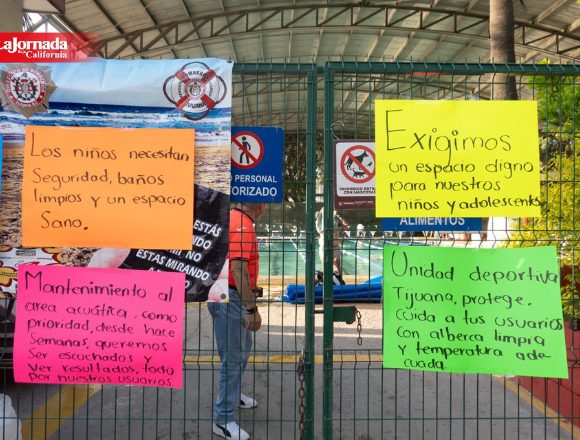 La Jornada
Baja California
Los niños necesitan
Seguridad, baños
limpios y un espacio
Sano.
Exigimos
un espacio digno
para nuestros
niños y adolescentes
PERSONAL
AUTORIZADO
PROHIBIDO
LA ENTRADA
CON MASCOTAS
ALIMENTOS
ESTÁS
NO ESTAS
ESTÁN MIRANDO
Mantenimiento al
area acuática, como
prioridad, desde hace
Semanas, queremos
Ser escuchados y
ver resultados, todo
por nuestros usuarios
Unidad deportiva
Tijuana, protege,
cuida a tus usuarios
con alberca limpia
y temperatura ade-
cuada.